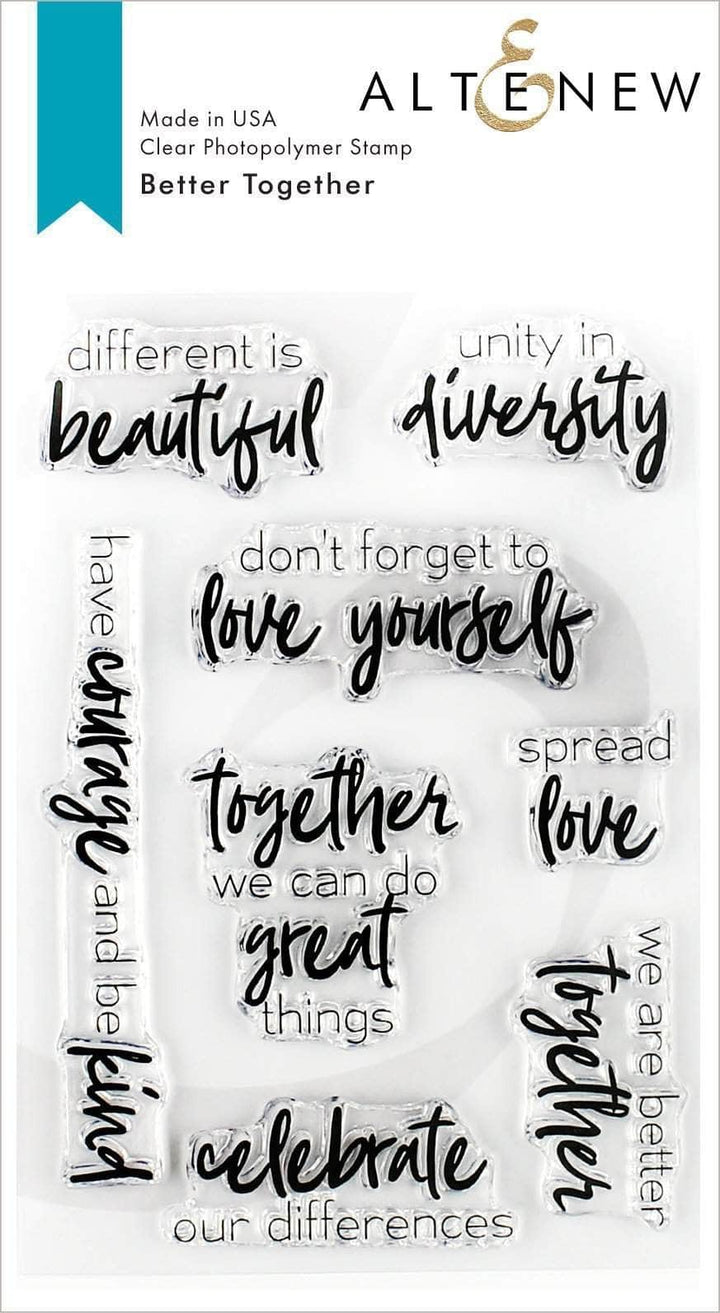 ALTENEW
Made in USA
Clear Photopolymer Stamp
Better Together
different is
beautiful
unity in
diversity
don't forget to
love yourself
have courage and be kind
together
we can do
great
things
spread
love
we are better
together
celebrate
our differences